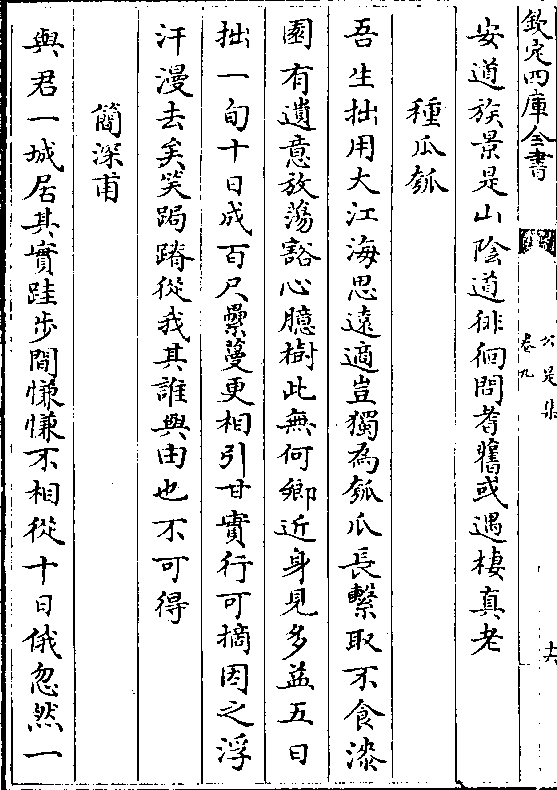 欽定四庫全書
公是集
卷九
十六
安道族景是山陰道徘徊問耆舊或遇棲真老
種瓜瓠
吾生拙用大江海思遠適豈獨為瓠瓜長繫取不食漆
園有遺意放蕩豁心臆樹此無何鄉近身見多益五日
拙一旬十日成百尺纍蔓更相引甘實行可摘因之浮
汗漫去矣笑跼蹐從我其誰與由也不可得
簡深甫
與君一城居其實跬步間慊慊不相從十日俄忽然一